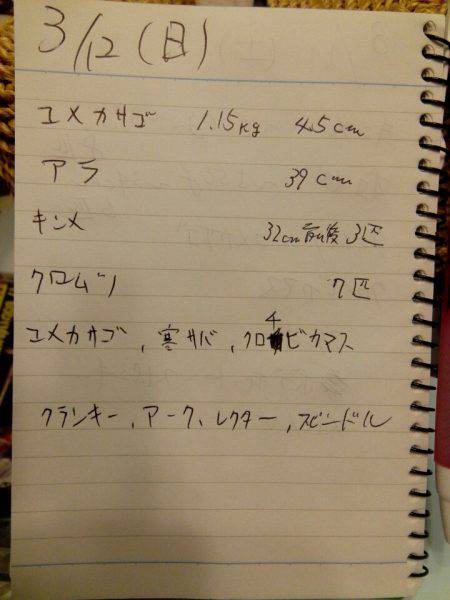 3/12(日)
ユメカサゴ 1.15kg 45cm
アラ 39cm
キンメ 32cm前後 3匹
クロムツ 7匹
ユメカサゴ, 寒サバ, クロ4ビカマス
クランキー, アーク, レクター, スピンドル